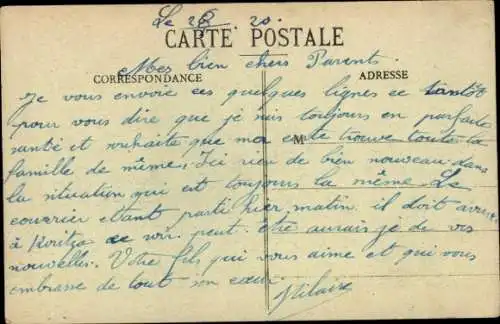 Le 28 20.
CARTE POSTALE
Mes bien chers Parents.
CORRESPONDANCE ADRESSE
Je vous envoie ces quelques lignes ce tantôt
pour vous dire que je suis toujours en parfaite
santé et souhaite que ma carte trouve toute la
M
famille de même. Ici rien de bien nouveau dans
la situation qui est toujours la même. Le
courrier étant parti hier matin il doit
à Koritza ce soir. peut être aurais je de vos
nouvelles. Votre fils qui vous aime et qui vous
embrasse de tout son cœur.
Hilaire